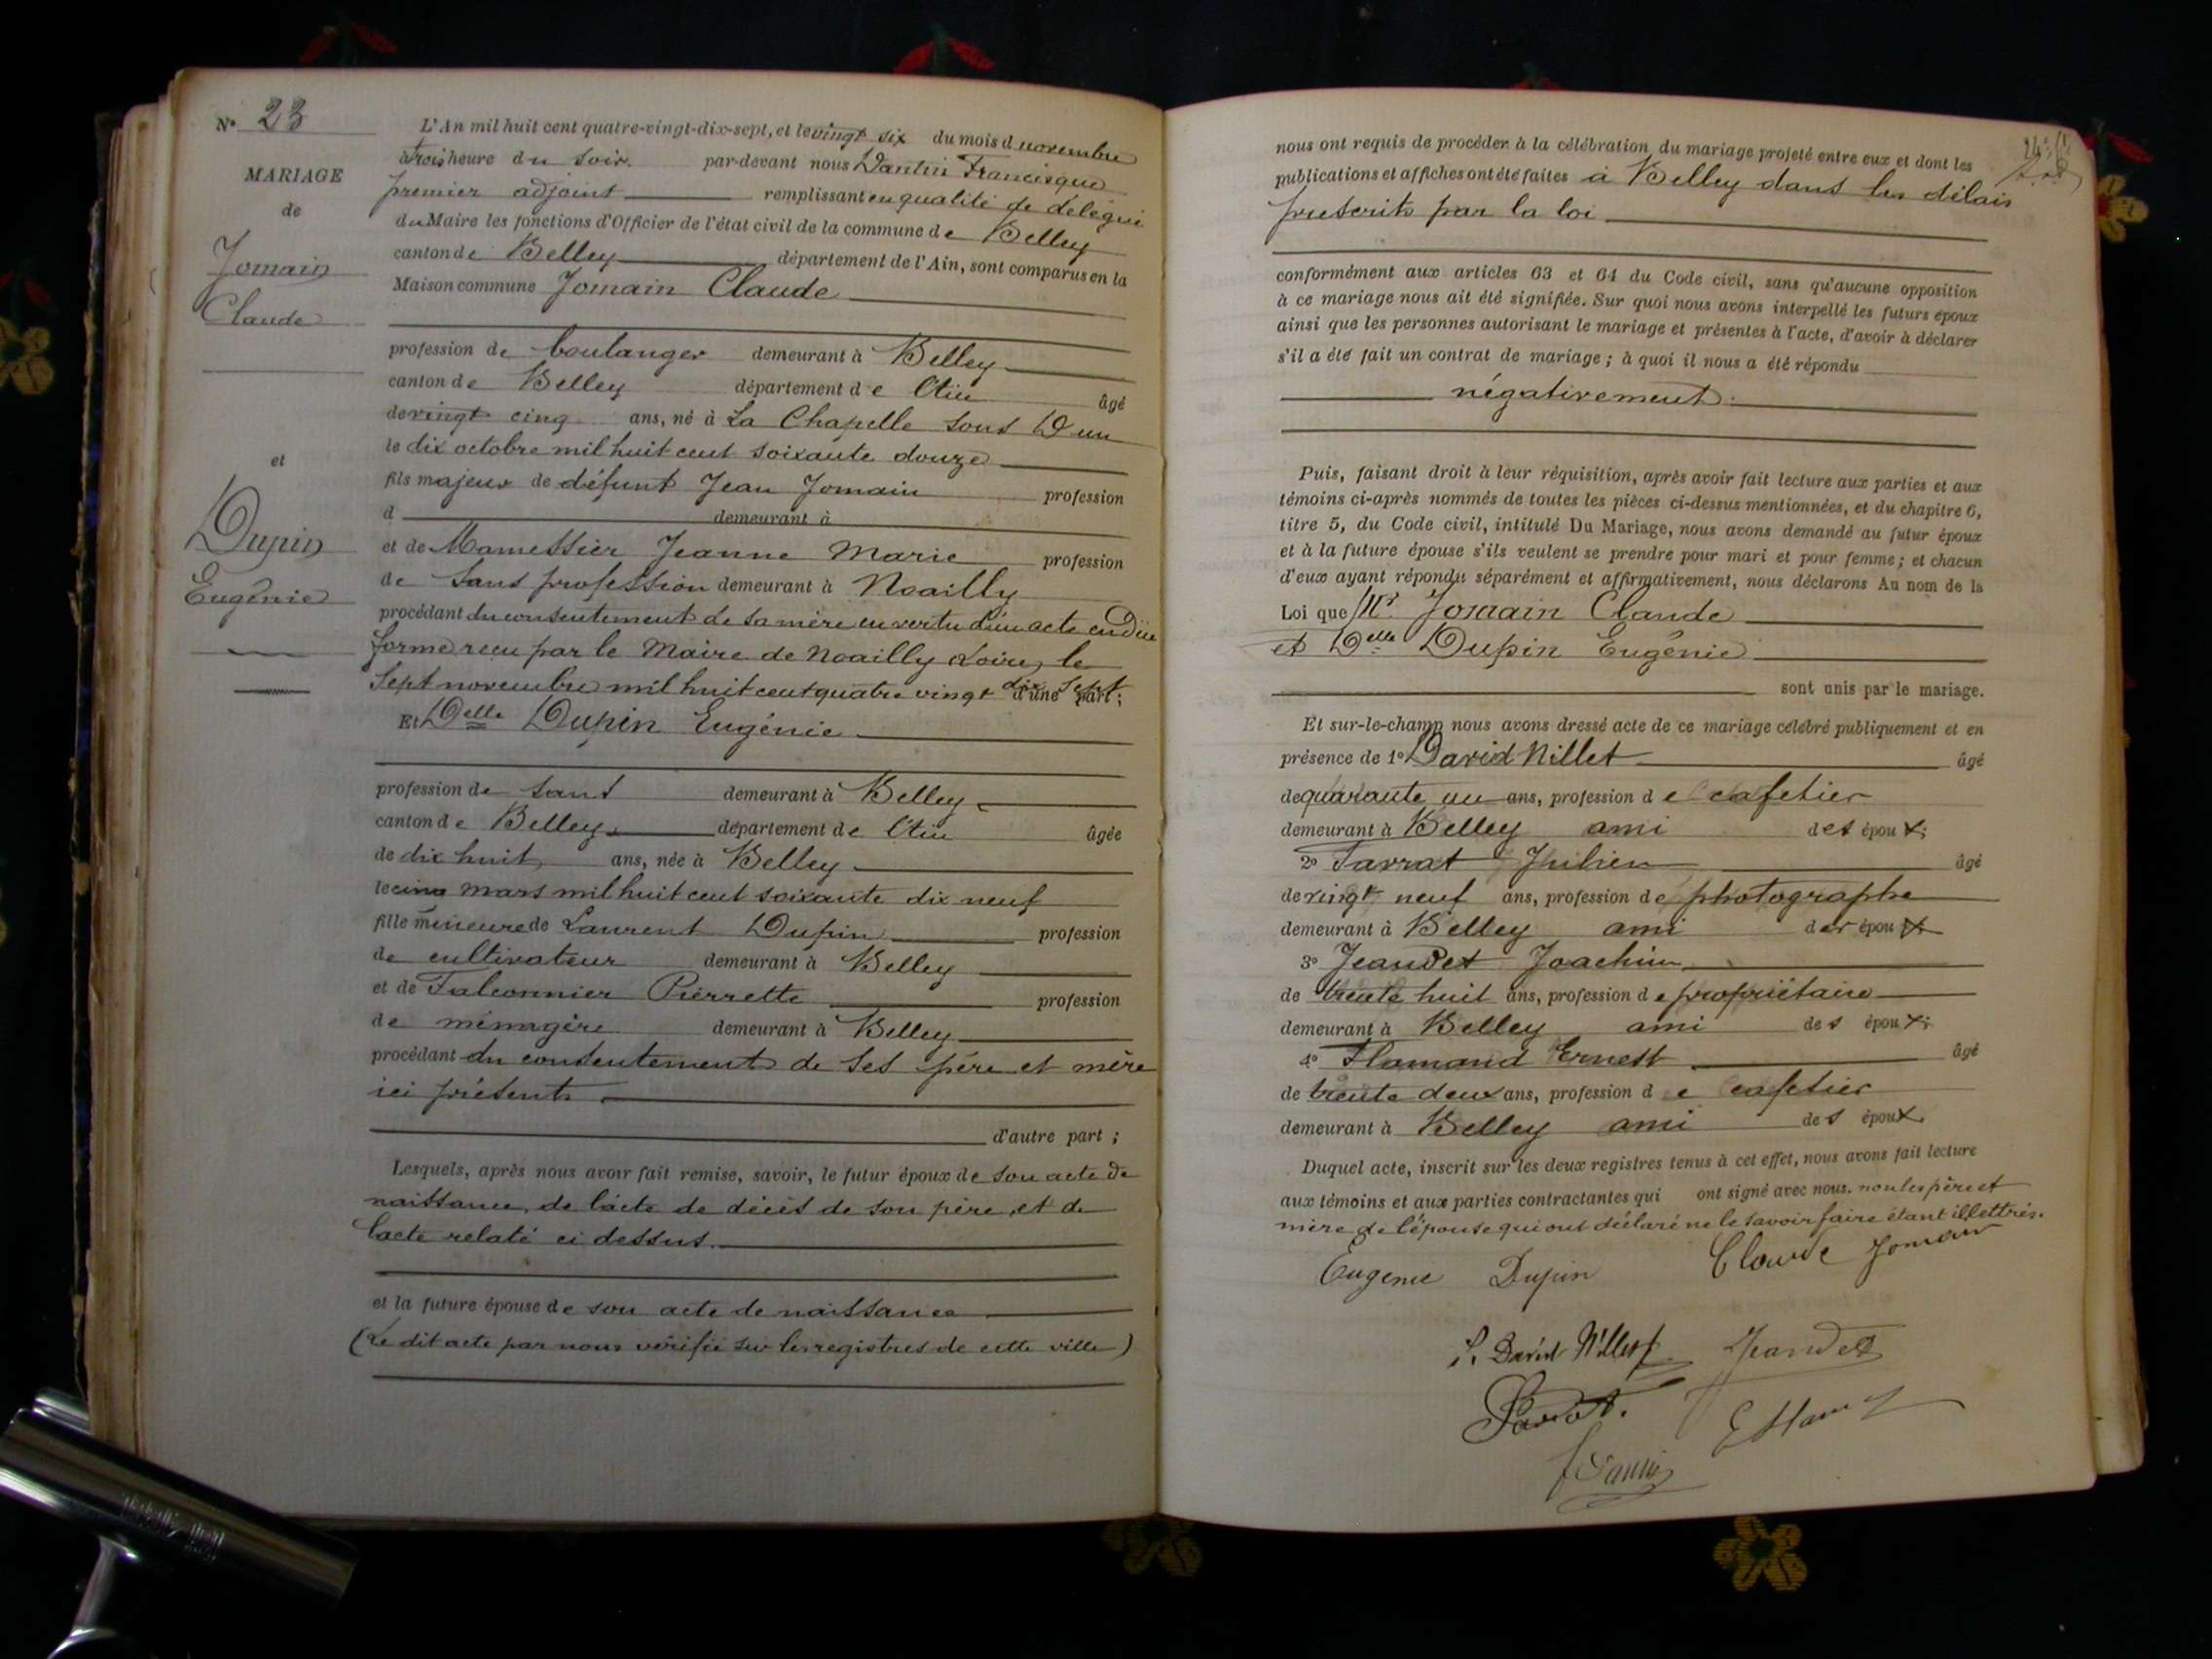 N° 23
MARIAGE
de
Jomain
Claude
et
Dupin
Eugénie
L'An mil huit cent quatre-vingt-dix-sept, et le vingt six du mois d novembre
à trois heure du soir par-devant nous Dantin Francisque
premier adjoint remplissant en qualité de délégué
du Maire les fonctions d'Officier de l'état civil de la commune de Belley
canton de Belley département de l'Ain, sont comparus en la
Maison commune Jomain Claude
profession de boulanger demeurant à Belley
canton de Belley département de l'Ain âgé
de vingt cinq ans, né à La Chapelle sous Dun
le dix octobre mil huit cent soixante douze
fils majeur de défunt Jean Jomain profession
d demeurant à
et de Mamessier Jeanne Marie profession
de sans profession demeurant à Noailly
procédant du consentement de sa mère en vertu d'un acte en due
forme reçu par le Maire de Noailly Loire, le
sept novembre mil huit cent quatre vingt dix sept d'une part;
Et Delle Dupin Eugénie
profession de sans demeurant à Belley
canton de Belley département de l'Ain âgée
de dix huit ans, née à Belley
le cinq mars mil huit cent soixante dix neuf
fille mineure de Laurent Dupin profession
de cultivateur demeurant à Belley
et de Falconnier Pierrette profession
de ménagère demeurant à Belley
procédant du consentement de ses père et mère
ici présents
d'autre part ;
Lesquels, après nous avoir fait remise, savoir, le futur époux de son acte de
naissance, de l'acte de décès de son père, et de
l'acte relaté ci dessus.
et la future épouse de son acte de naissance
(Le dit acte par nous vérifié sur les registres de cette ville)
nous ont requis de procéder à la célébration du mariage projeté entre eux et dont les
publications et affiches ont été faites à Belley dans les délais
prescrits par la loi
conformément aux articles 63 et 64 du Code civil, sans qu'aucune opposition
à ce mariage nous ait été signifiée. Sur quoi nous avons interpellé les futurs époux
ainsi que les personnes autorisant le mariage et présentes à l'acte, d'avoir à déclarer
s'il a été fait un contrat de mariage ; à quoi il nous a été répondu
négativement.
Puis, faisant droit à leur réquisition, après avoir fait lecture aux parties et aux
témoins ci-après nommés de toutes les pièces ci-dessus mentionnées, et du chapitre 6,
titre 5, du Code civil, intitulé Du Mariage, nous avons demandé au futur époux
et à la future épouse s'ils veulent se prendre pour mari et pour femme ; et chacun
d'eux ayant répondu séparément et affirmativement, nous déclarons Au nom de la
Loi que Mr Jomain Claude
et Delle Dupin Eugénie
sont unis par le mariage.
Et sur-le-champ nous avons dressé acte de ce mariage célébré publiquement et en
présence de 1° David Nillet âgé
de quarante un ans, profession de cafetier
demeurant à Belley ami des époux;
2° Farrat Julien âgé
de vingt neuf ans, profession de photographe
demeurant à Belley ami des époux
3° Jeandet Joachim
de trente huit ans, profession de propriétaire
demeurant à Belley ami des époux;
4° Flamand Ernest âgé
de trente deux ans, profession de cafetier
demeurant à Belley ami des époux
Duquel acte, inscrit sur les deux registres tenus à cet effet, nous avons fait lecture
aux témoins et aux parties contractantes qui ont signé avec nous. non les père et
mère de l'épouse qui ont déclaré ne le savoir faire étant illettrés.
Eugenie Dupin Claude Jomain
David Nillet Jeandet